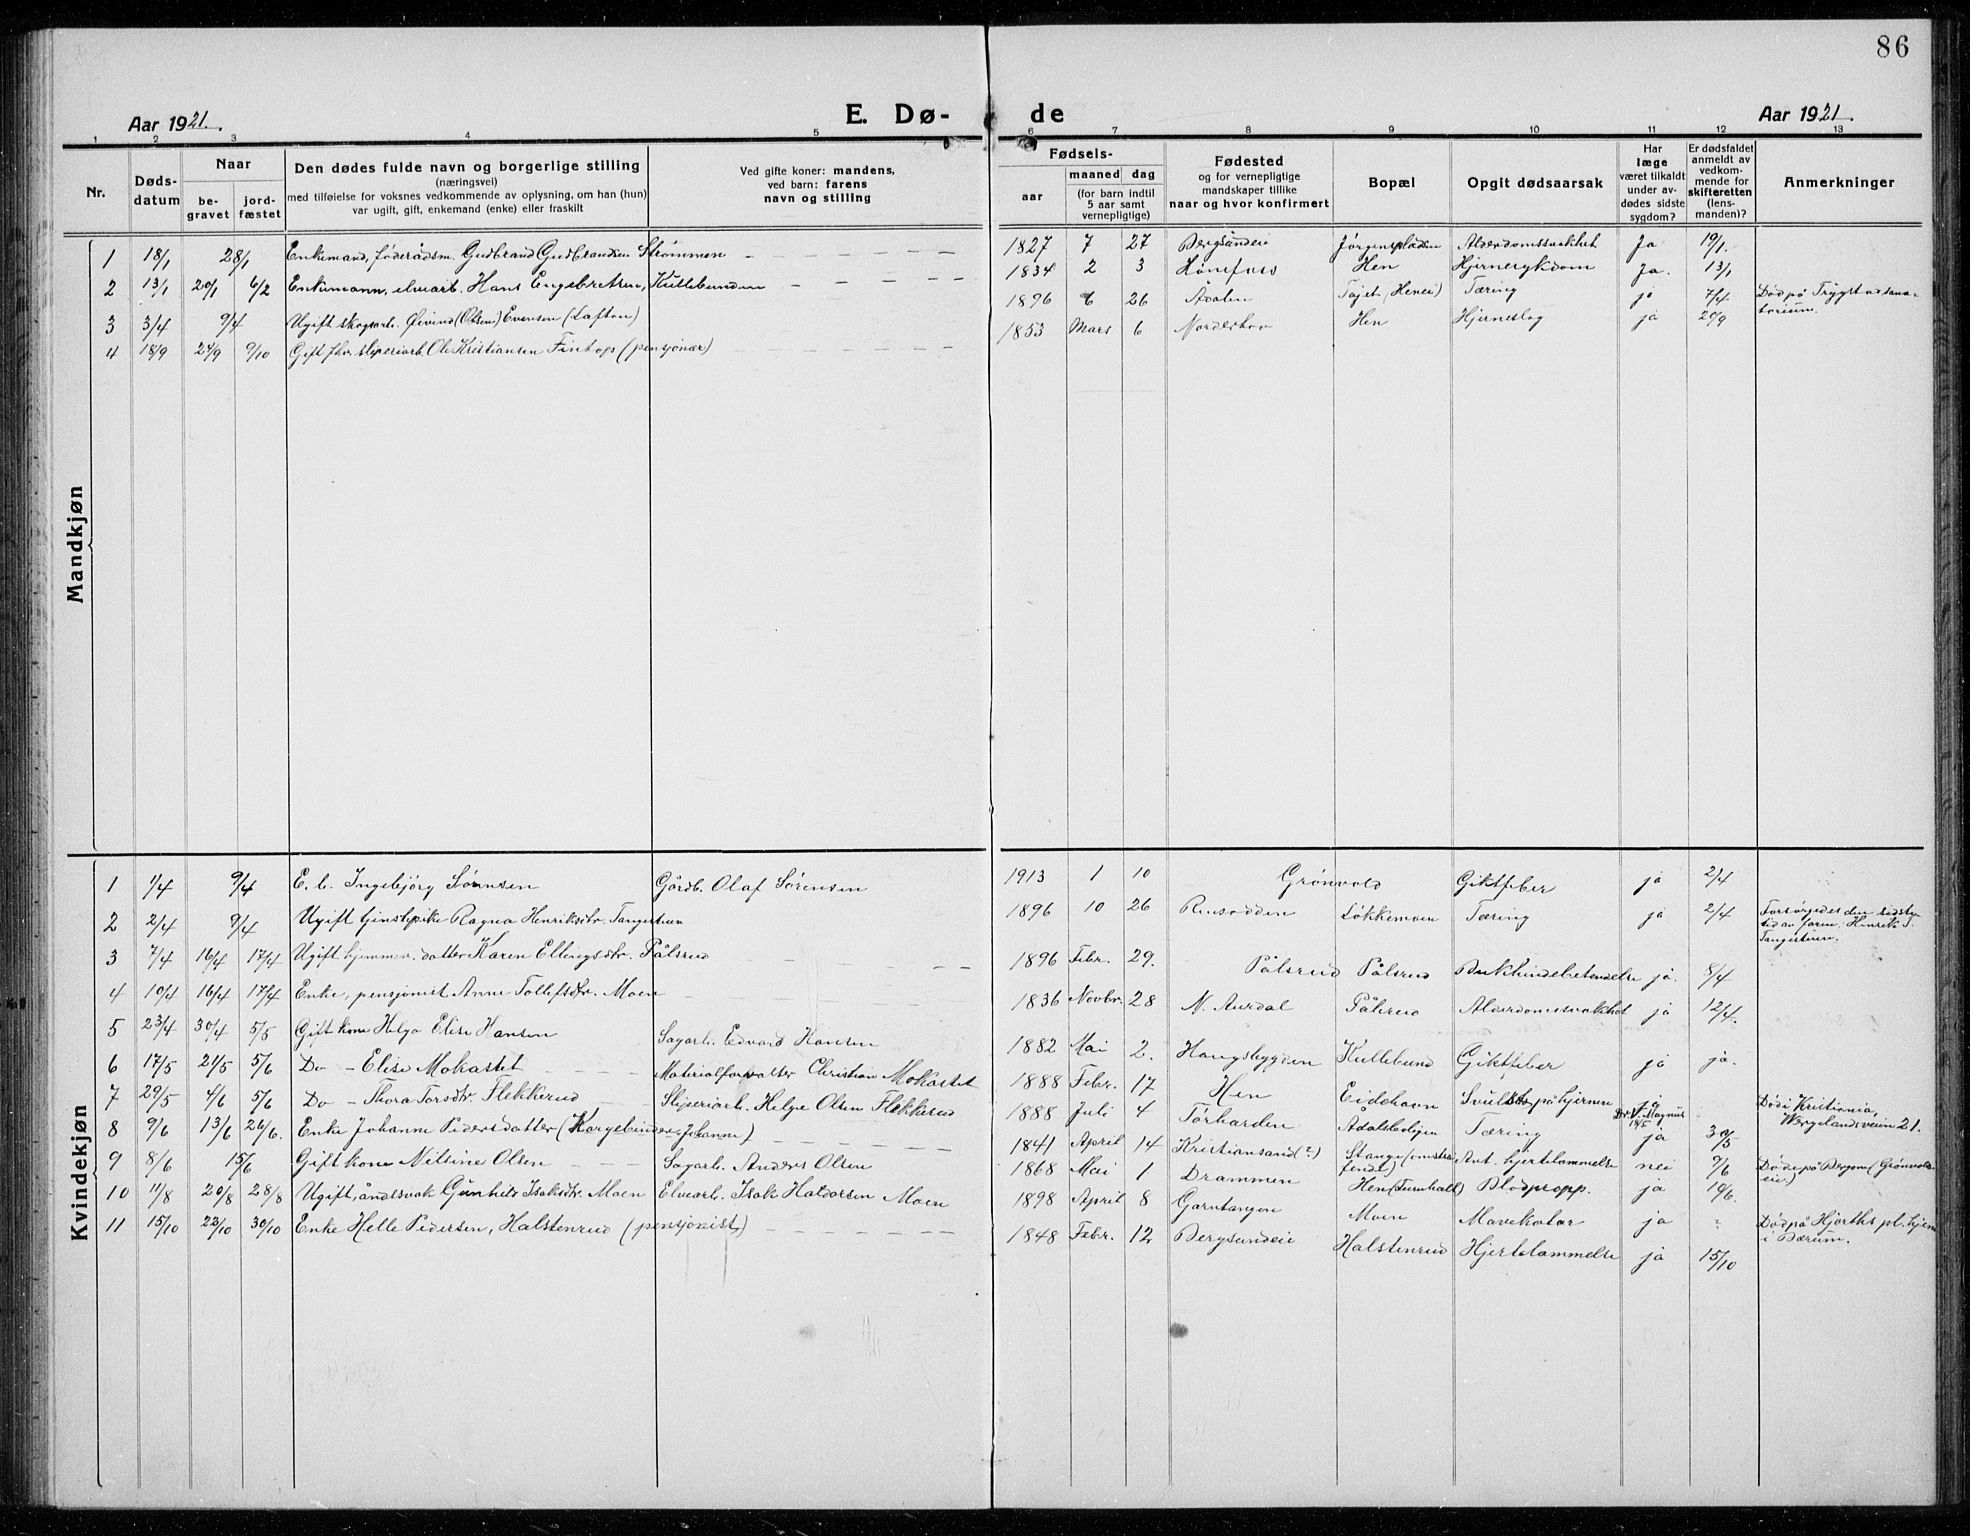 86
Aar 1921.
E. Dø-
de
Aar 1921.
1 2 3 4 5 6 7 8 9 10 11 12 13
Nr.
Døds-
datum
Naar
be-
gravet
jord-
fæstet
Den dødes fulde navn og borgerlige stilling
(næringsvei)
med tilføielse for voksnes vedkommende av oplysning, om han (hun)
var ugift, gift, enkemand (enke) eller fraskilt
Ved gifte koner: mandens,
ved barn: farens
navn og stilling
Fødsels-
aar
maaned dag
(for barn indtil
5 aar samt
vernepligtige)
Fødested
og for vernepligtige
mandskaper tillike
naar og hvor konfirmert
Bopæl
Opgit dødsaarsak
Har
læge
været tilkaldt
under av-
dødes sidste
sygdom?
Er dødsfaldet
anmeldt av
vedkom-
mende for
skifteretten
(lens-
manden)?
Anmerkninger
Mandkjøn
1 18/1 28/1 Enkemand, føderådsm. Gudbrand Gudbrandsen Strømmen 1827 7 27 Bergsundeie Jørgenspladsen Alderdomssvakhet Ja 19/1.
2 13/1 20/1 6/2 Enkemann, elvearb. Hans Engebretsen, Kullebunden 1834 2 3 Hønefoss Hen Hjernesykdom Ja. 13/1
3 3/4 9/4 Ugift skogsarb. Øivind (Olsen) Evensen (Loften) 1896 6 26 Ådalen Tajet (Heneie) Tæring ja 7/4 Død på Trygstad sana-
torium.
4 18/9 24/9 9/10 Gift fhv. sliperiarb. Ole Kristiansen Fintops (pensjonær) 1853 Mars 6 Norderhov Hen Hjerneslag ja 20/9
Kvindekjøn
1 1/4 9/4 E. b. Ingebjørg Sørensen Gårdb. Olaf Sørensen 1913 1 10 Grønvold Giktfeber ja 2/4
2 2/4 9/4 Ugift tjenstepike Ragna Henriksdtr. Tangestuen 1896 10 26 Løkkemoen Tæring ja 2/4 Forsørgedes den sidste
tid av faren Henrik T.
Tangestuen.
3 7/4 16/4 17/4 Ugift hjemmev. datter Karen Ellingsdtr. Pålsrud 1896 Febr. 29. Pålsrud Pålsrud Bukhindebetendelse ja. 8/4
4 10/4 16/4 17/4 Enke, pensjonist Anne Tollefsdtr. Moen 1836 Novbr. 28 N. Aurdal Pålsrud Alderdomssvakhet ja 12/4.
5 23/4 30/4 5/5 Gift kone Helga Elise Hansen Sagarb. Edvard Hansen 1882 Mai 2. Haugsbygden Kullebund Giktfeber ja ja.
6 17/5 21/5 5/6 Do - Elise Mokastet Materialforvalter Christian Mokastet 1888 Febr. 17 Hen Eidshavn Svulst på hjernen ja
Dr. V. Magnus
18/5 Død i Kristiania,
Wergelandsveien 21.
7 29/5 4/6 5/6 Do - Thora Torsdtr. Flekkerud Sliperiarb. Helge Olsen Flekkerud 1888 Juli 4 Ådalsbolijen Tæring ja 30/5
8 9/6 13/6 26/6. Enke Johanne Pedersdatter (Korgebinder-Johanne) 1841 April 14 Kristiansand (?) Ant. hjertelammelse nei 9/6 Døde på Bergom (Grønvold-
eie.)
9 8/6 15/6 Gift kone Nilsine Olsen Sagarb. Anders Olsen 1868 Mai 1 Drammen Hen (Turnhall) Blodpropp. ja 10/6.
10 11/8 20/8 28/8 Ugift, åndssvak Gunhild Isaksdtr. Moen Elvearb. Isak Haldorsen Moen 1898 April 8 Garntangen Moen Mavekatar ja ? Død på Hjorths pl. hjem
i Bærum.
11 15/10 22/10 30/10 Enke Helle Pedersen, Halstenrud (pensjonist) 1848 Febr. 12 Bergsundeie Halstenrud Hjertelammelse ja 15/10